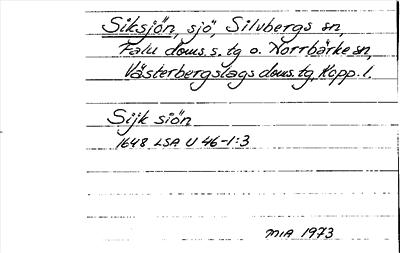 Siksjön, sjö, Silvbergs sn,
Falu doms.s. tg o. Norrbärke sn,
Västerbergslags doms.tg, Kopp. l.
Sijk siön
1648 LSA U 46-1:3
MIA 1973